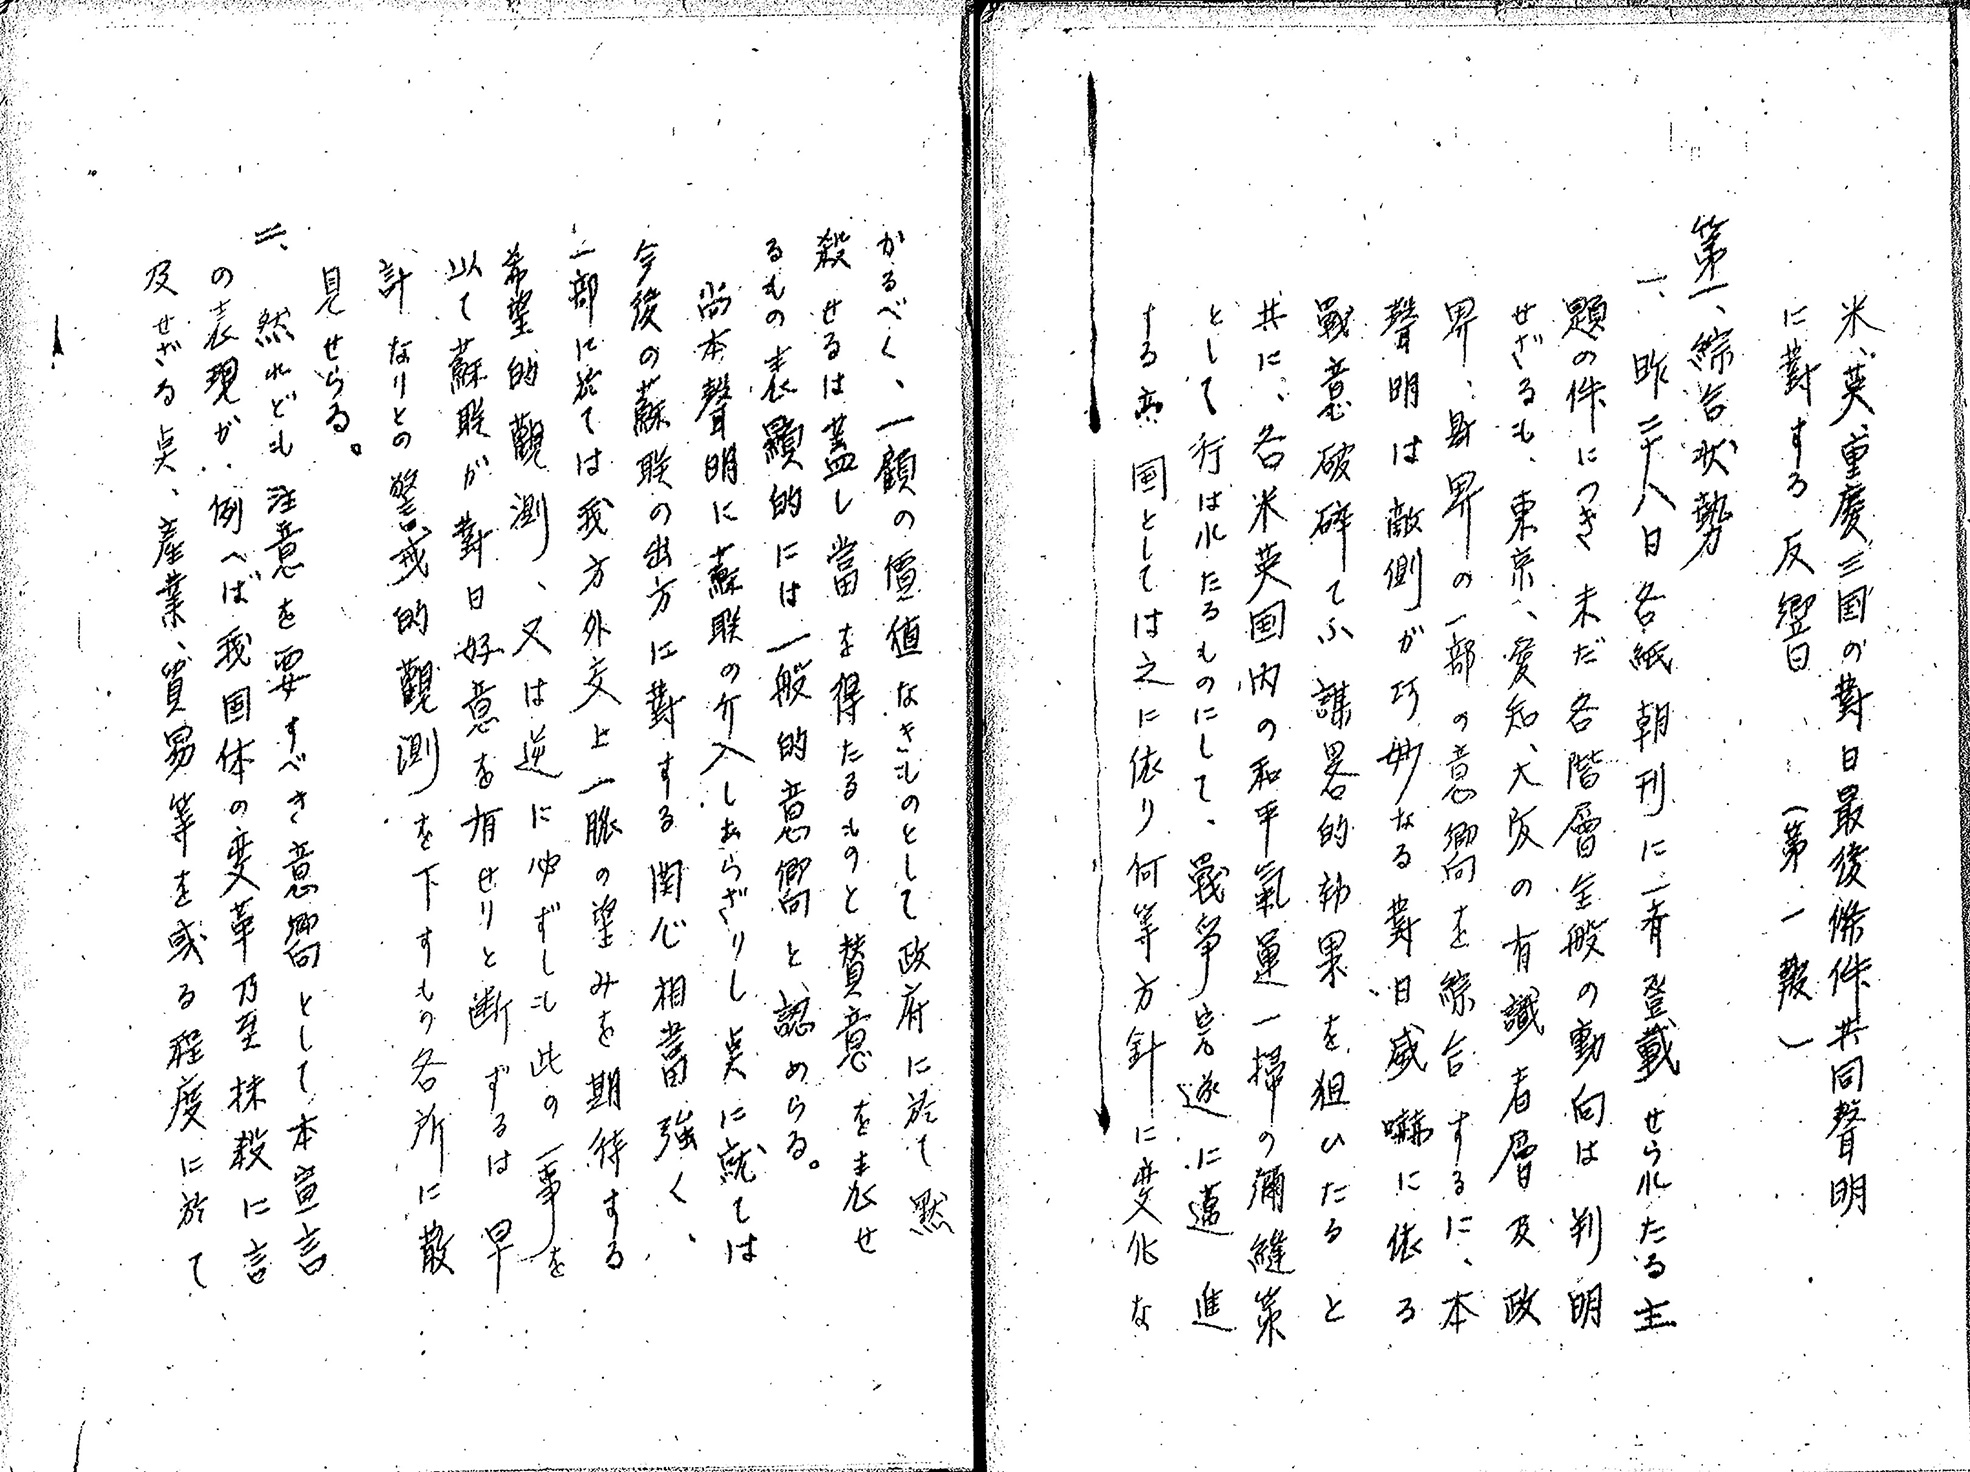 米、英、重慶三国の對日最後條件共同聲明
に對する反響　（第一報）
第一、綜合状勢
一、昨二十八日各紙朝刊に一斉登載せられたる主
題の件につき未だ各階層全般の動向は判明
せざるも、東京、愛知、大阪の有識者層及政
界、財界の一部の意嚮を綜合するに、本
聲明は敵側が巧妙なる對日威嚇に依る
戰意破碎てふ謀畧的効果を狙ひたると
共に、各米英国内の和平氣運一掃の彌縫策
として行はれたるものにして、戰爭完遂に邁進
する帝国としては之に依り何等方針に変化な
かるべく、一顧の價値なきものとして政府に於て黙
殺せるは蓋し當を得たるものと賛意を表せ
るもの表顯的には一般的意嚮と認めらる。
尚本聲明に蘇聯の介入しあらざりし点に就ては
今後の蘇聯の出方に對する関心相當強く、
一部に於ては我方外交上一脈の望みを期待する
希望的觀測、又は逆に必ずしも此の一事を
以て蘇聯が對日好意を有せりと断ずるは早
計なりとの警戒的觀測を下すもの各所に散
見せらる。
二、然れども注意を要すべき意嚮として本宣言
の表現が例へば我国体の変革乃至抹殺に言
及せざる点、産業、貿易等を或る程度に於て